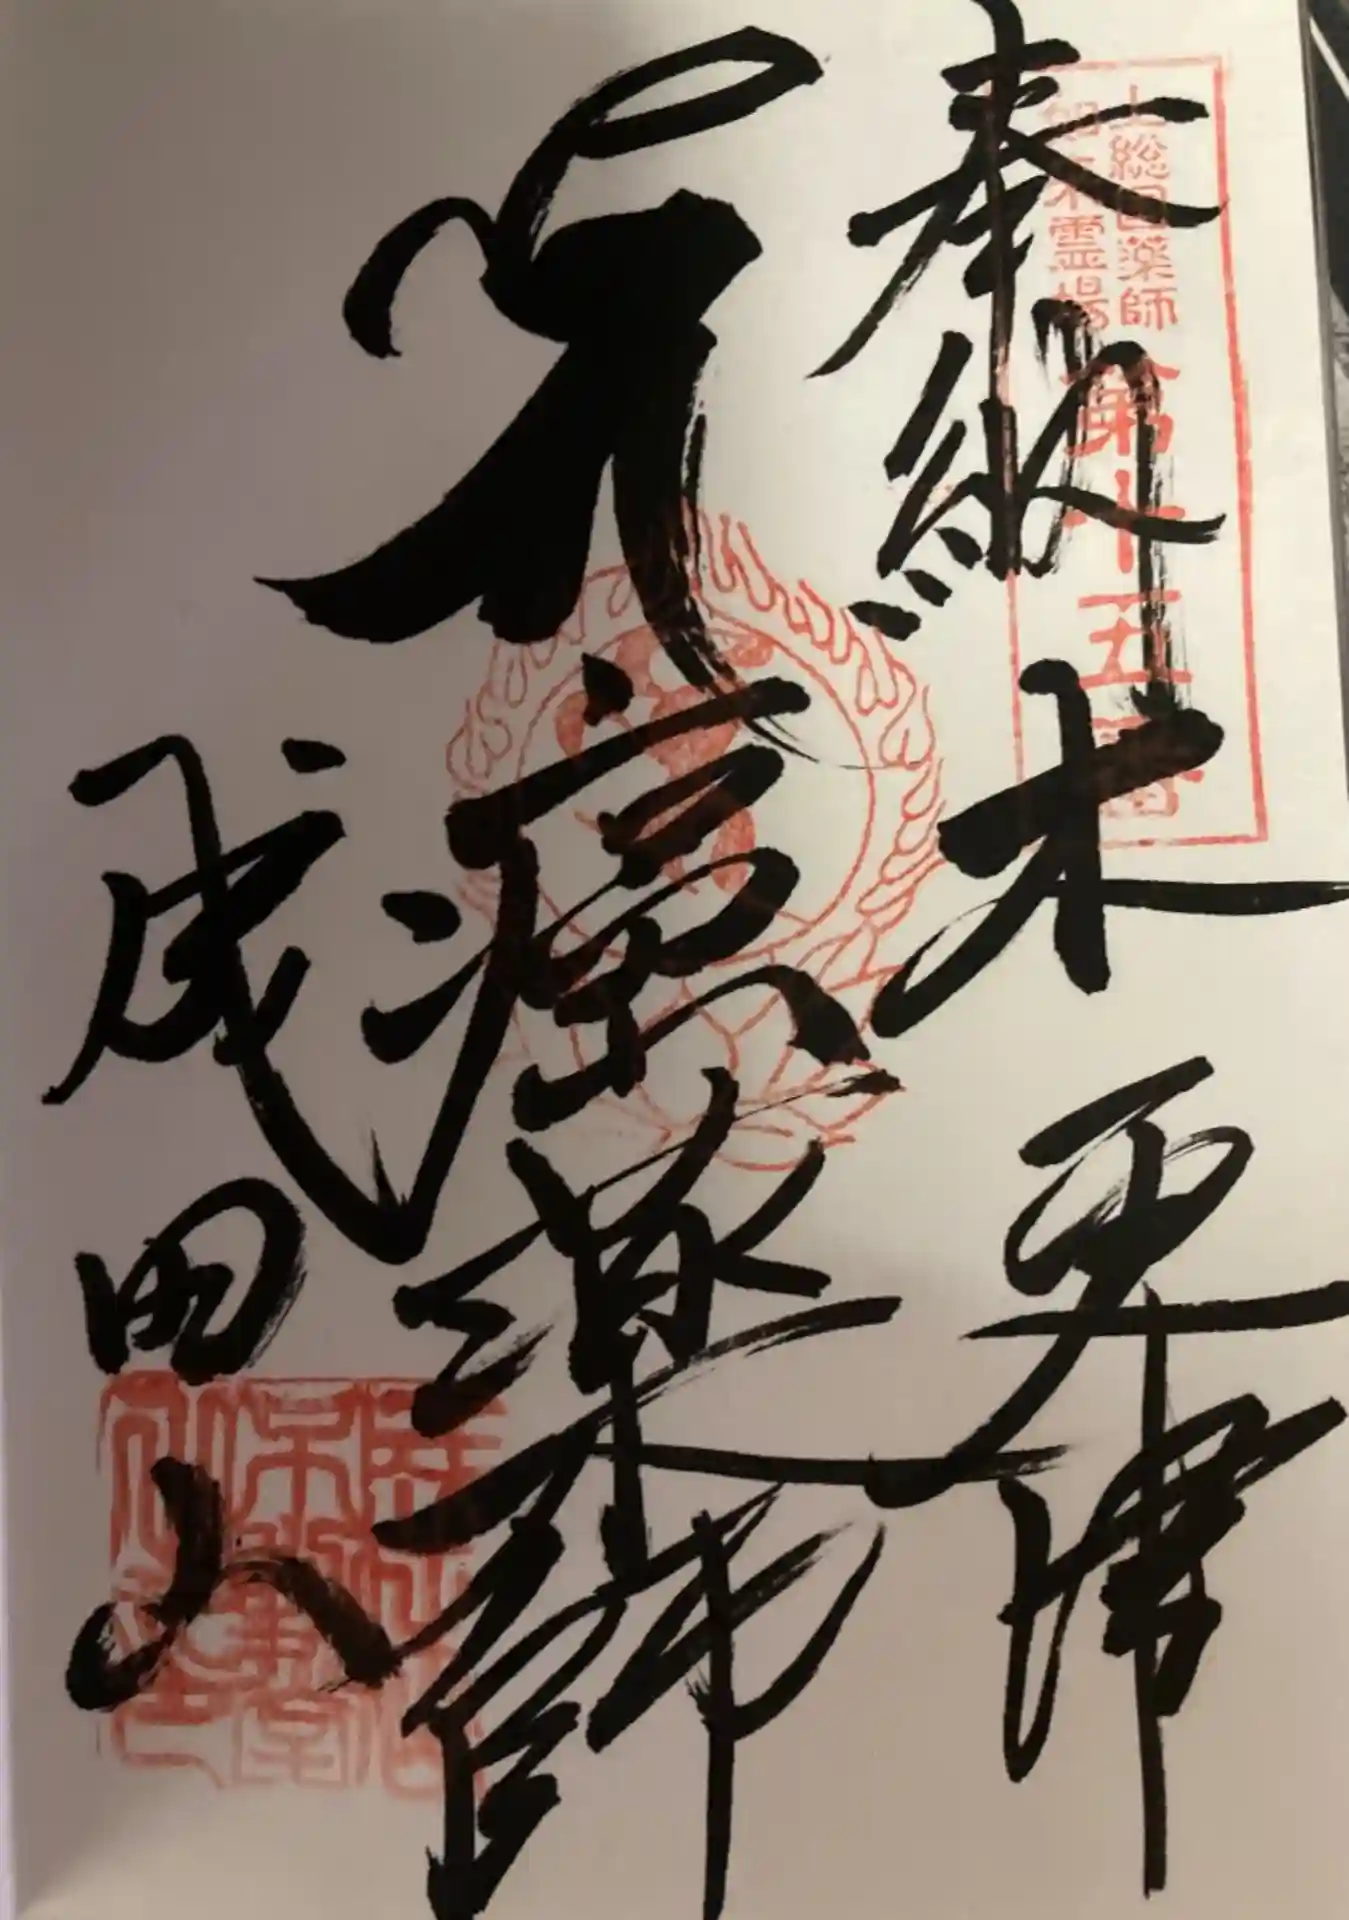 奉納 木更津
上総国薬師
如来霊場
第十五番
薬師
成田山